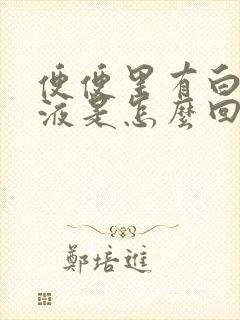 便便里有白
液是怎麼回
鄭培進